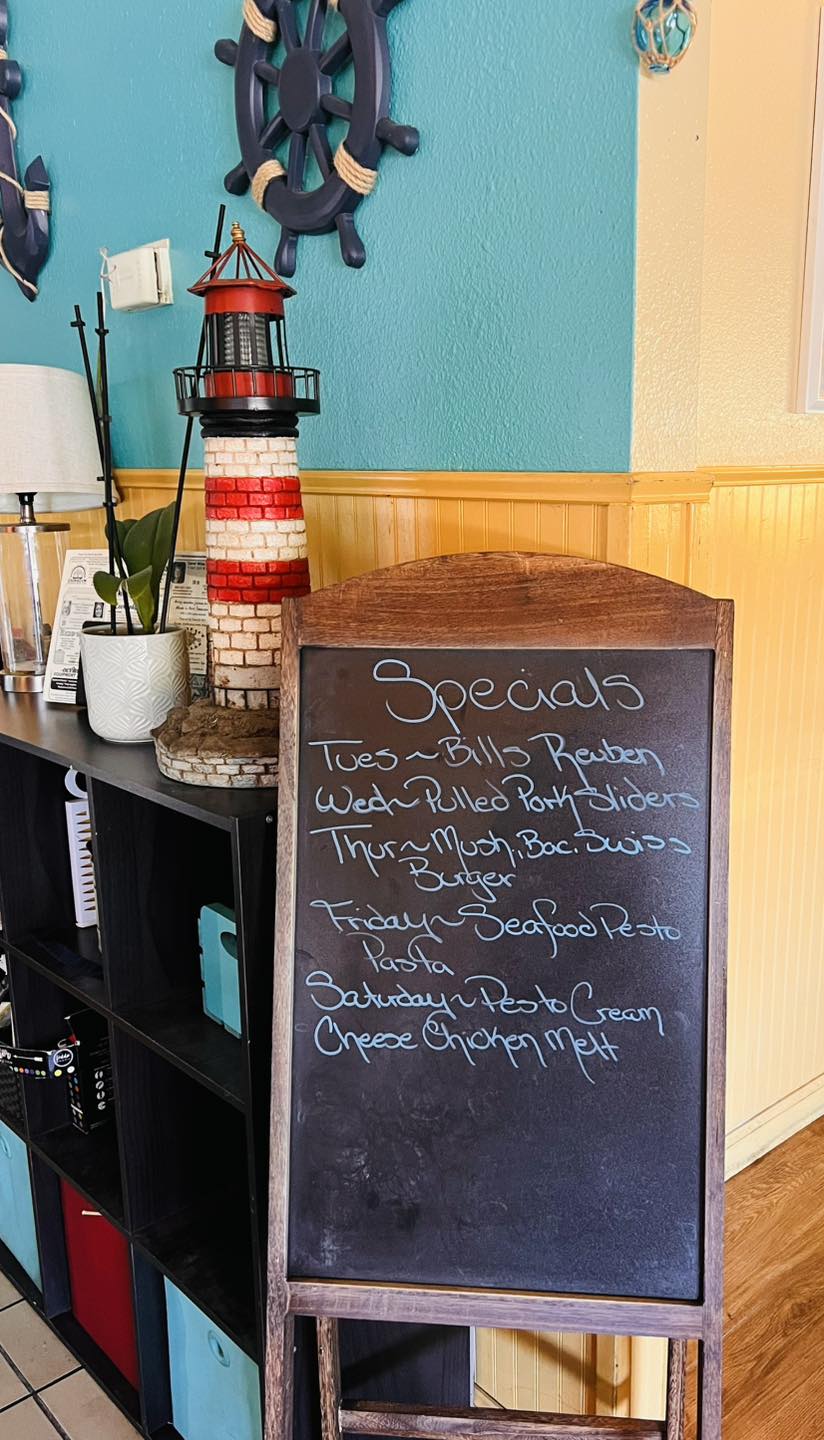 Specials
Tues ~ Bills Reuben
Wed ~ Pulled Pork Sliders
Thur ~ Mush., Bac. Swiss
Burger
Friday ~ Seafood Pesto
Pasta
Saturday ~ Pesto Cream
Cheese Chicken Melt